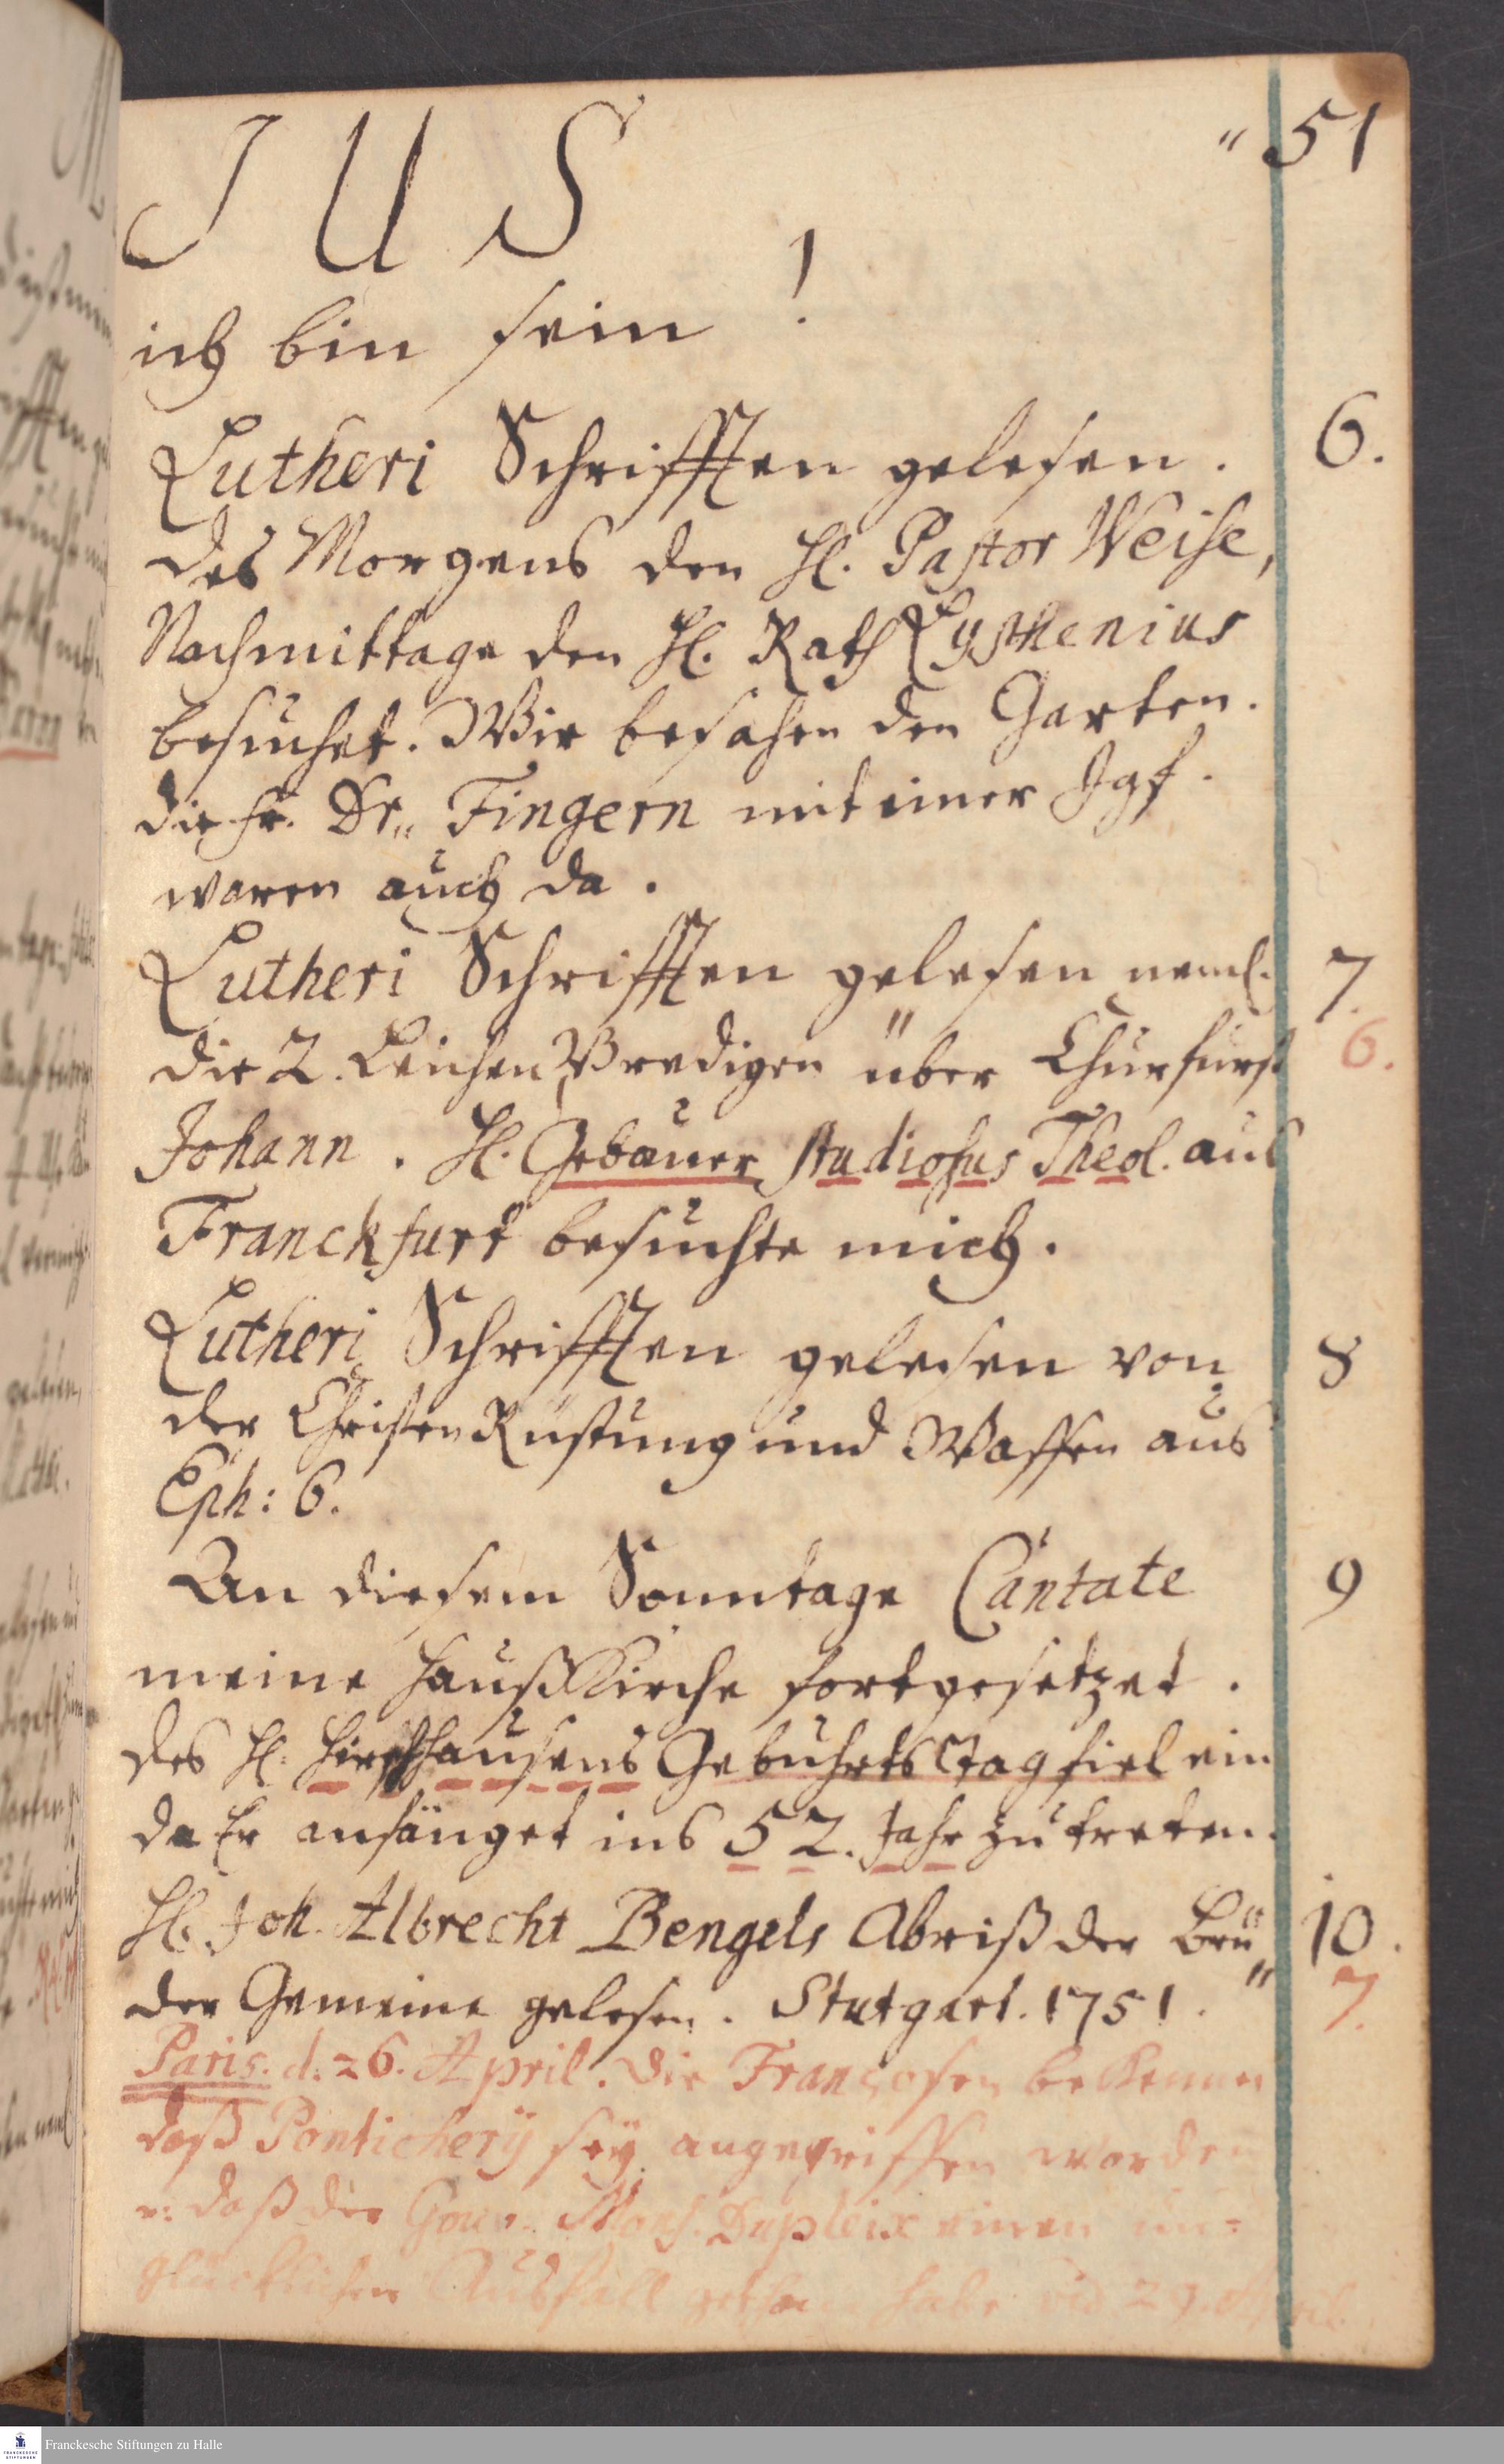 " 51
J U S
ich bin sein !
Lutheri Schrifften gelesen. 6.
des Morgens den H. Pastor Weise,
Nachmittage den H. Rath Lysthenius
besuchet. Wir besahen den Garten.
die Fr. Dr„ Fingern mit einer Jgf.
waren auch da.
Lutheri Schrifften gelesen neml. 7.
die 2. Leichen Predigen über Churfürst 6.
Johann. H. Gebauer Studiosus Theol. aus
Franckfurt besuchte mich.
Lutheri Schrifften gelesen von 8
der Christen Rüstung und Waffen aus
Eph: 6.
An diesem Sonntage Cantate 9
meine Haußkirche fortgesetzet.
des H. Hirschhausens Gebuhrts Tag fiel ein
da Er anfänget ins 52. Jahr zu treten.
H. Joh. Albrecht Bengels Abriß der Brü„ 10.
der Gemeine gelesen. Stutgart. 1751. " 7.
Paris. d. 26. April. die Francosen bekennen
daß Pontichery sey angegriffen worden
u: daß der Gouv. Mons. Dupleix einen un=
glücklichen Ausfall gethan habe vid 29. April.
FRANCKESCHE STIFTUNGEN
Franckesche Stiftungen zu Halle